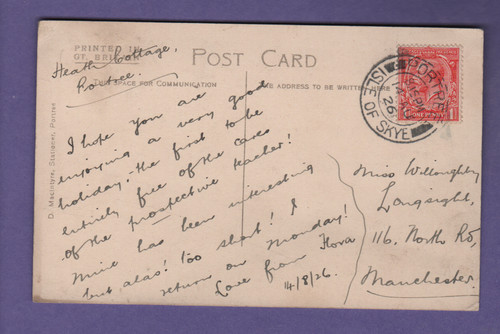 PRINTED IN
GT. BRITAIN
POST CARD
SPACE FOR COMMUNICATION
ADDRESS TO BE WRITTEN HERE
D. Macintyre, Stationer, Portree
Heath Cottage,
Portree.
I hope you are
enjoying a very good
holiday; the first to be
entirely free of the cares
of the prospective teacher!
Mine has been interesting
but alas! too short! I
return on Monday!
Love from Flora
14/8/26.
PORTREE
ISLE OF SKYE
26
ONE PENNY
Miss Willoughby
Longsight,
116. North Rd,
Manchester.